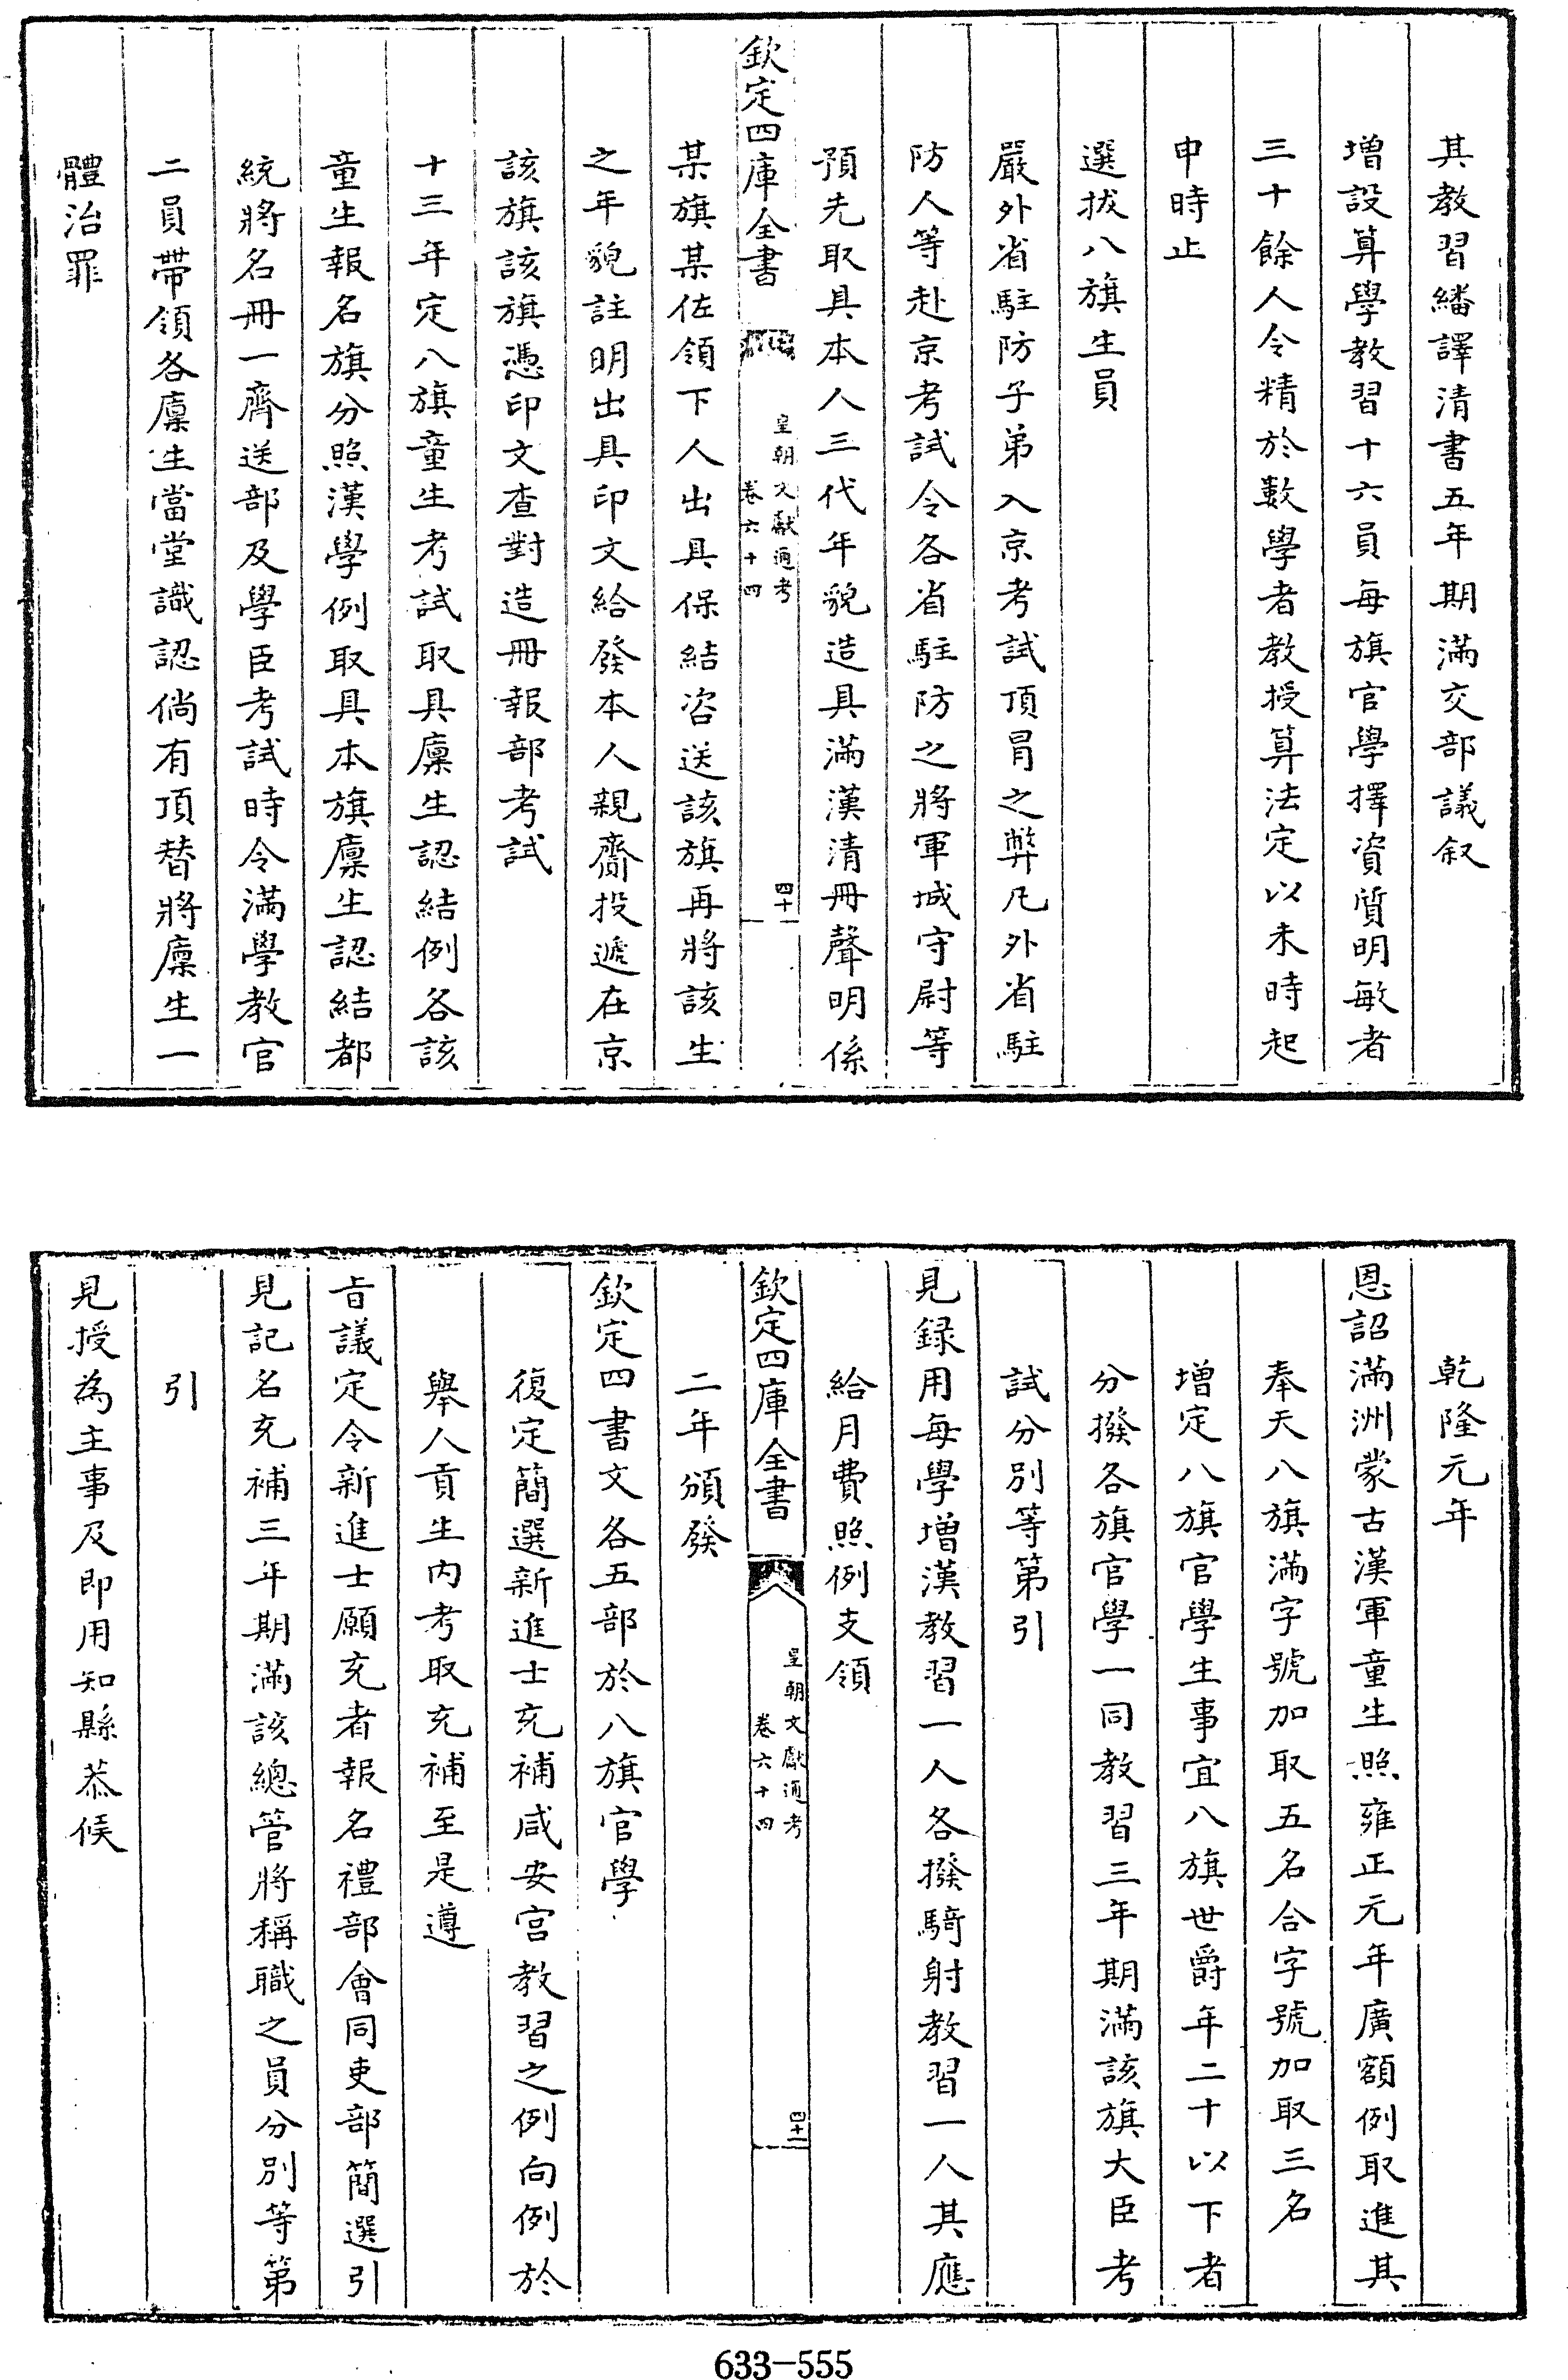 其教習繙譯清書五年期滿交部議叙
增設算學教習十六員每旗官學擇資質明敏者
三十餘人令精於數學者教授算法定以未時起
申時止
選拔八旗生員
嚴外省駐防子弟入京考試頂冐之弊凡外省駐
防人等赴京考試令各省駐防之將軍城守尉等
預先取具本人三代年貌造具滿漢清冊聲明係
欽定四庫全書
皇朝文獻通考
卷六十四
四十
某旗某佐領下人出具保結咨送該旗再將該生
之年貌註明出具印文給發本人親齎投遞在京
該旗該旗憑印文查對造冊報部考試
十三年定八旗童生考試取具廩生認結例各該
童生報名旗分照漢學例取具本旗廩生認結都
統將名冊一齊送部及學臣考試時令滿學教官
二員帶領各廩生當堂識認倘有頂替將廩生一
體治罪
乾隆元年
恩詔滿洲蒙古漢軍童生照雍正元年廣額例取進其
奉天八旗滿字號加取五名合字號加取三名
增定八旗官學生事宜八旗世爵年二十以下者
分撥各旗官學一同教習三年期滿該旗大臣考
試分別等第引
見録用每學增漢教習一人各撥騎射教習一人其應
給月費照例支領
欽定四庫全書
皇朝文獻通考
卷六十四
四十一
二年頒發
欽定四書文各五部於八旗官學
復定簡選新進士充補咸安宫教習之例向例於
舉人貢生内考取充補至是遵
旨議定令新進士願充者報名禮部會同吏部簡選引
見記名充補三年期滿該總管將稱職之員分別等第
引
見授為主事及即用知縣恭候
633-555